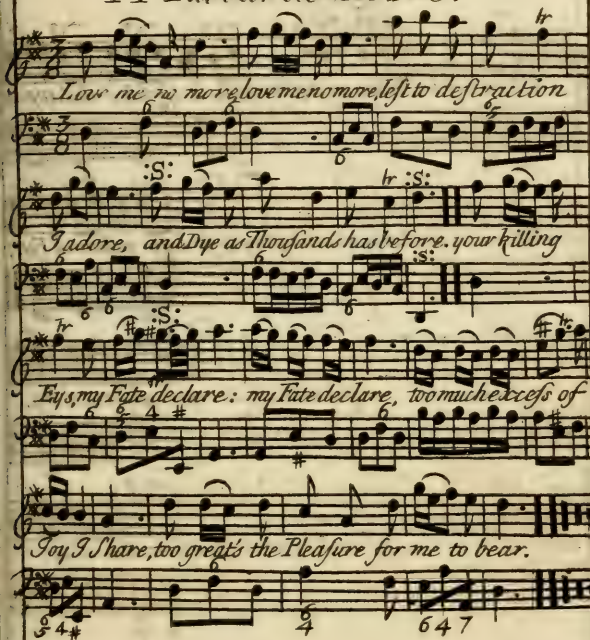 Love me no more, love me no more, left to destraction
I adore, and Dye as Thousands has before. your killing
Eys, my Fate declare: my Fate declare, too much excess of
Joy I Share, too great's the Pleasure for me to bear.